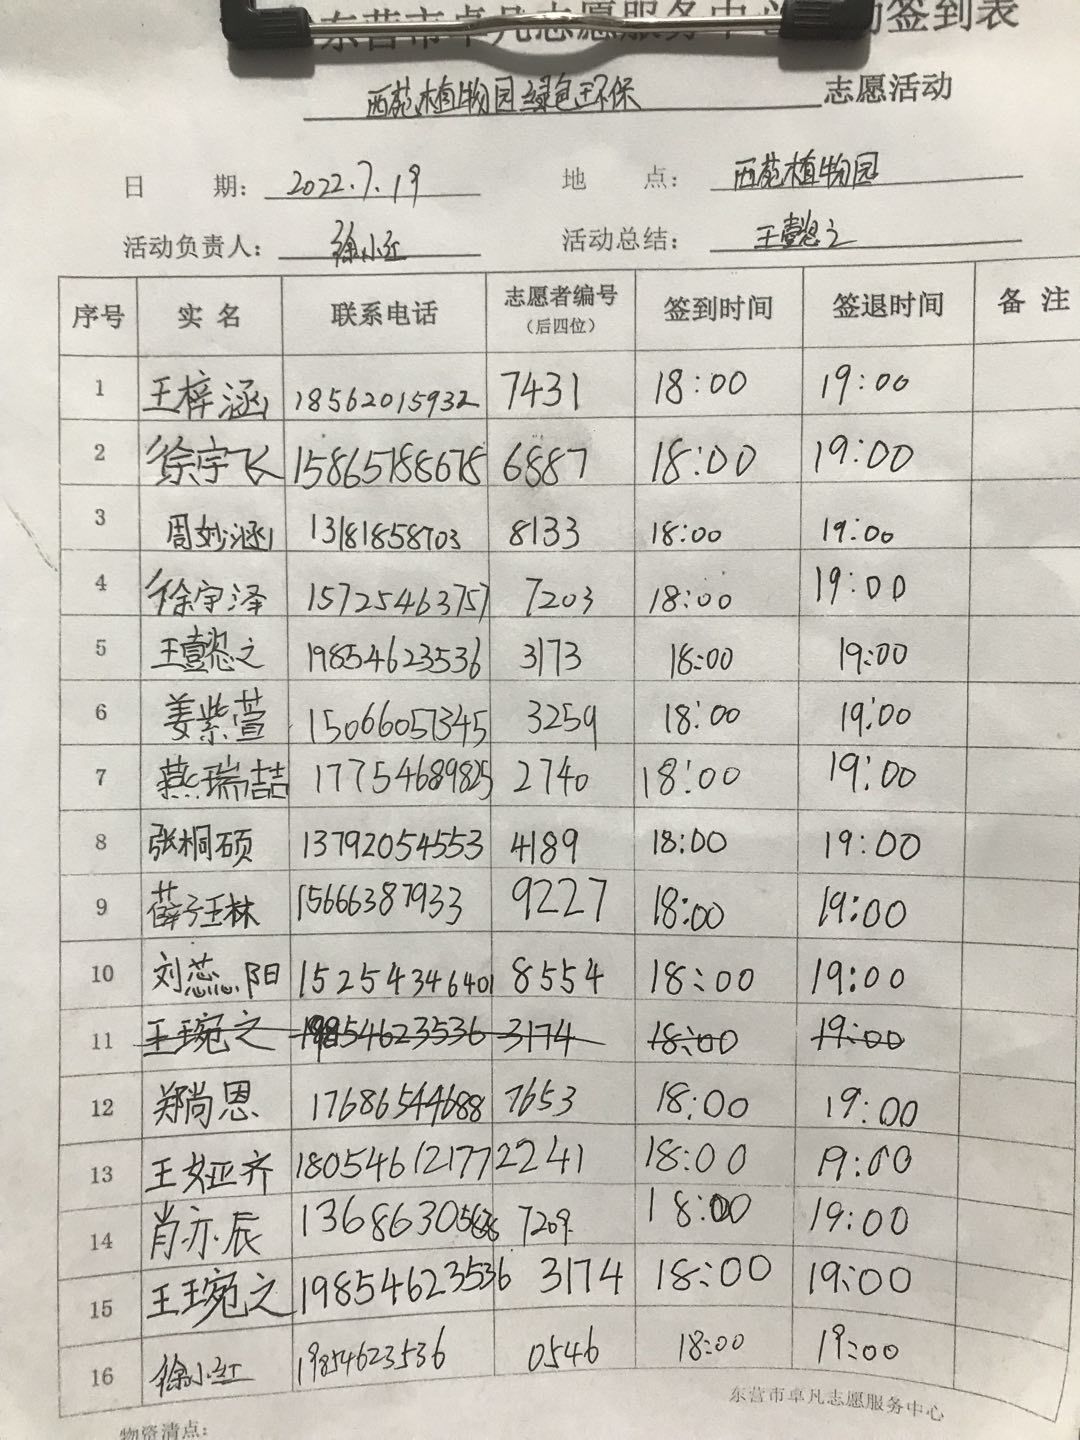 东营市卓凡志愿服务中心活动签到表
西苑植物园绿色环保 志愿活动
日 期： 2022.7.19 地 点： 西苑植物园
活动负责人： 徐小红 活动总结： 王懿之
序号 实名 联系电话 志愿者编号（后四位） 签到时间 签退时间 备注
1 王梓涵 18562015932 7431 18:00 19:00
2 徐宇飞 15865788678 6887 18:00 19:00
3 周妙涵 13181858703 8133 18:00 19:00
4 徐宇泽 15725463757 7203 18:00 19:00
5 王懿之 19854623536 3173 18:00 19:00
6 姜紫萱 15066057345 3259 18:00 19:00
7 燕瑞喆 17754689825 2740 18:00 19:00
8 张桐硕 13792054553 4189 18:00 19:00
9 薛子琳 15666387933 9227 18:00 19:00
10 刘蕊阳 15254346401 8554 18:00 19:00
11 王琬之 19854623536 3174 18:00 19:00
12 郑尚恩 17686544688 7653 18:00 19:00
13 王娅齐 18054612177 2241 18:00 19:00
14 肖亦辰 7209 18:00 19:00
15 王琬之 19854623536 3174 18:00 19:00
16 徐小红 19854623536 0546 18:00 19:00
东营市卓凡志愿服务中心
物资清点：